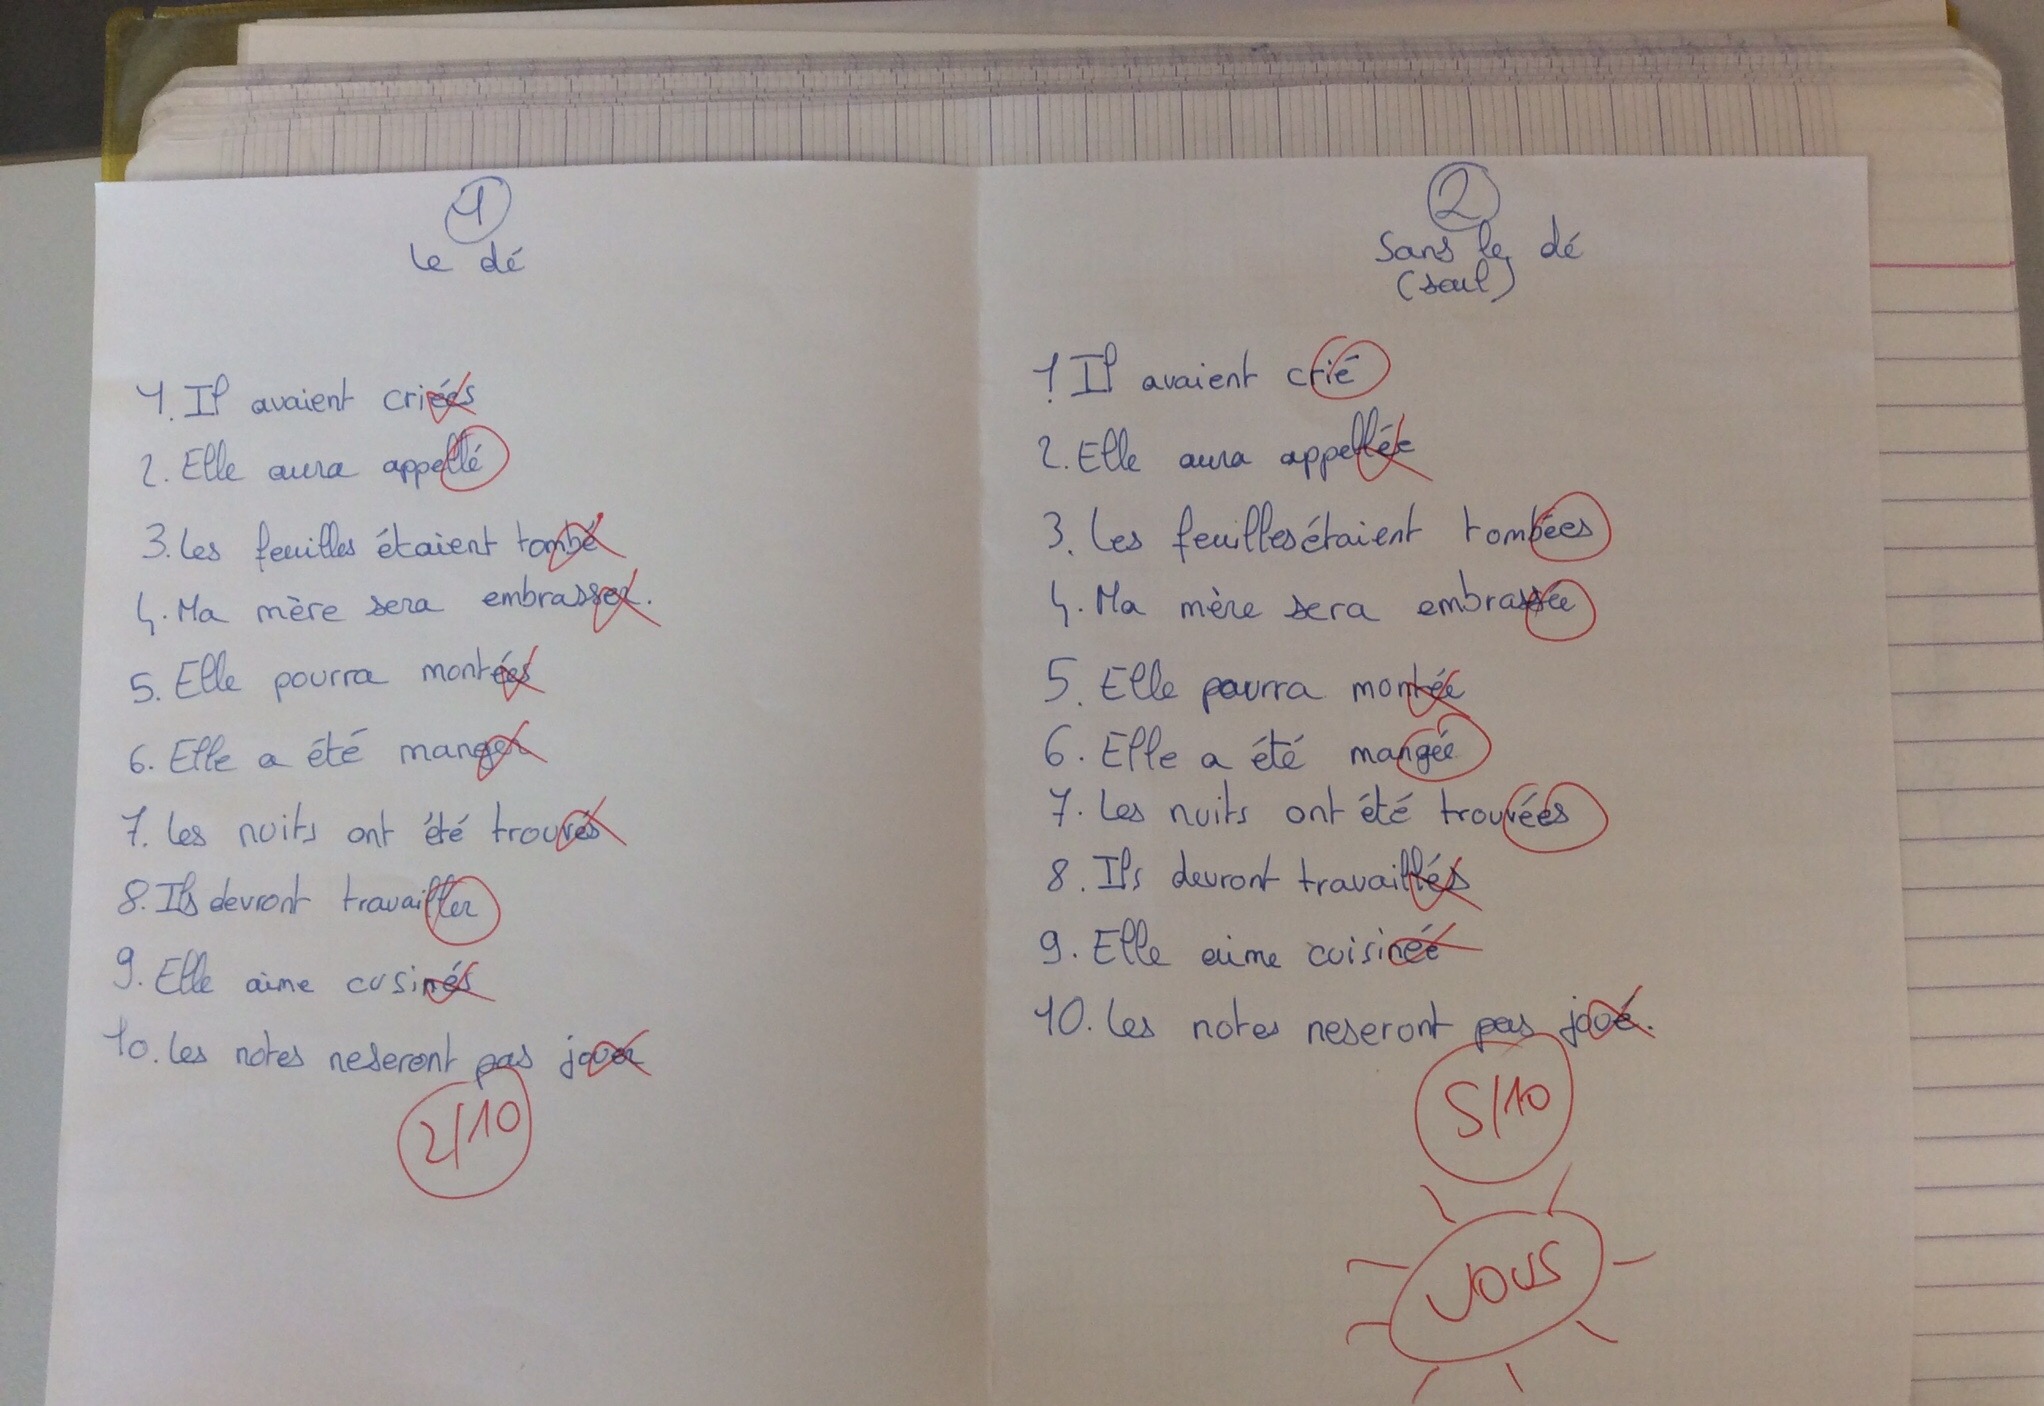 1
Le dé
1. Il avaient criéés
2. Elle aura appellé
3. Les feuilles étaient tombé
4. Ma mère sera embrasser.
5. Elle pourra montées
6. Elle a été manger
7. Les nuits ont été trouvés
8. Ils devront travailler
9. Elle aime cusinés
10. Les notes neseront pas jouer
2/10
2
Sans le dé
(seul)
1 Il avaient crié
2. Elle aura appellée
3. Les feuilles étaient tombées
4. Ma mère sera embrassée
5. Elle pourra montée
6. Elle a été mangée
7. Les nuits ont été trouvées
8. Ils devront travaillés
9. Elle aime cuisinée
10. Les notes neseront pas joué.
5/10
VOUS